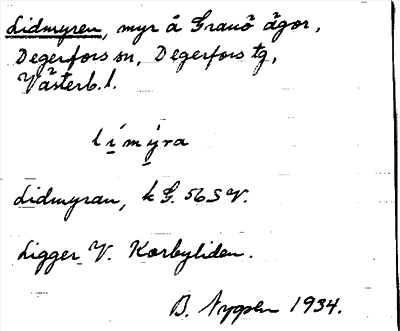 Lidmyren, myr å Granö ägor,
Degerfors sn, Degerfors tg,
Västerb. l.
lími̱ýra
Lidmyran, k G. 56 S V.
Ligger V. Korbyliden.
B. Nygren 1934.